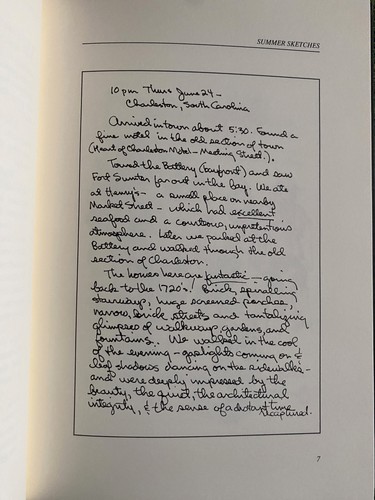 SUMMER SKETCHES
10 pm Thurs June 24 –
Charleston, South Carolina
Arrived in town about 5:30. Found a
fine motel in the old section of town
(Heart of Charleston Motel – Meeting Street.).
Toured the Battery (bayfront) and saw
Fort Sumter far out in the bay. We ate
at Henry's – a small place on nearby
Market Street – which had excellent
seafood and a courteous, unpretentious
atmosphere. Later we parked at the
Battery and walked through the old
section of Charleston.
The houses here are fantastic – going
back to the 1720's. Brick, spiralling
stairways, huge screened porches,
narrow, brick streets and tantalizing
glimpses of walkways, gardens, and
fountains. We walked in the cool
of the evening – gaslights coming on &
leaf shadows dancing on the sidewalks –
and were deeply impressed by the
beauty, the quiet, the architectural
integrity, & the sense of a distant time
recaptured.
7